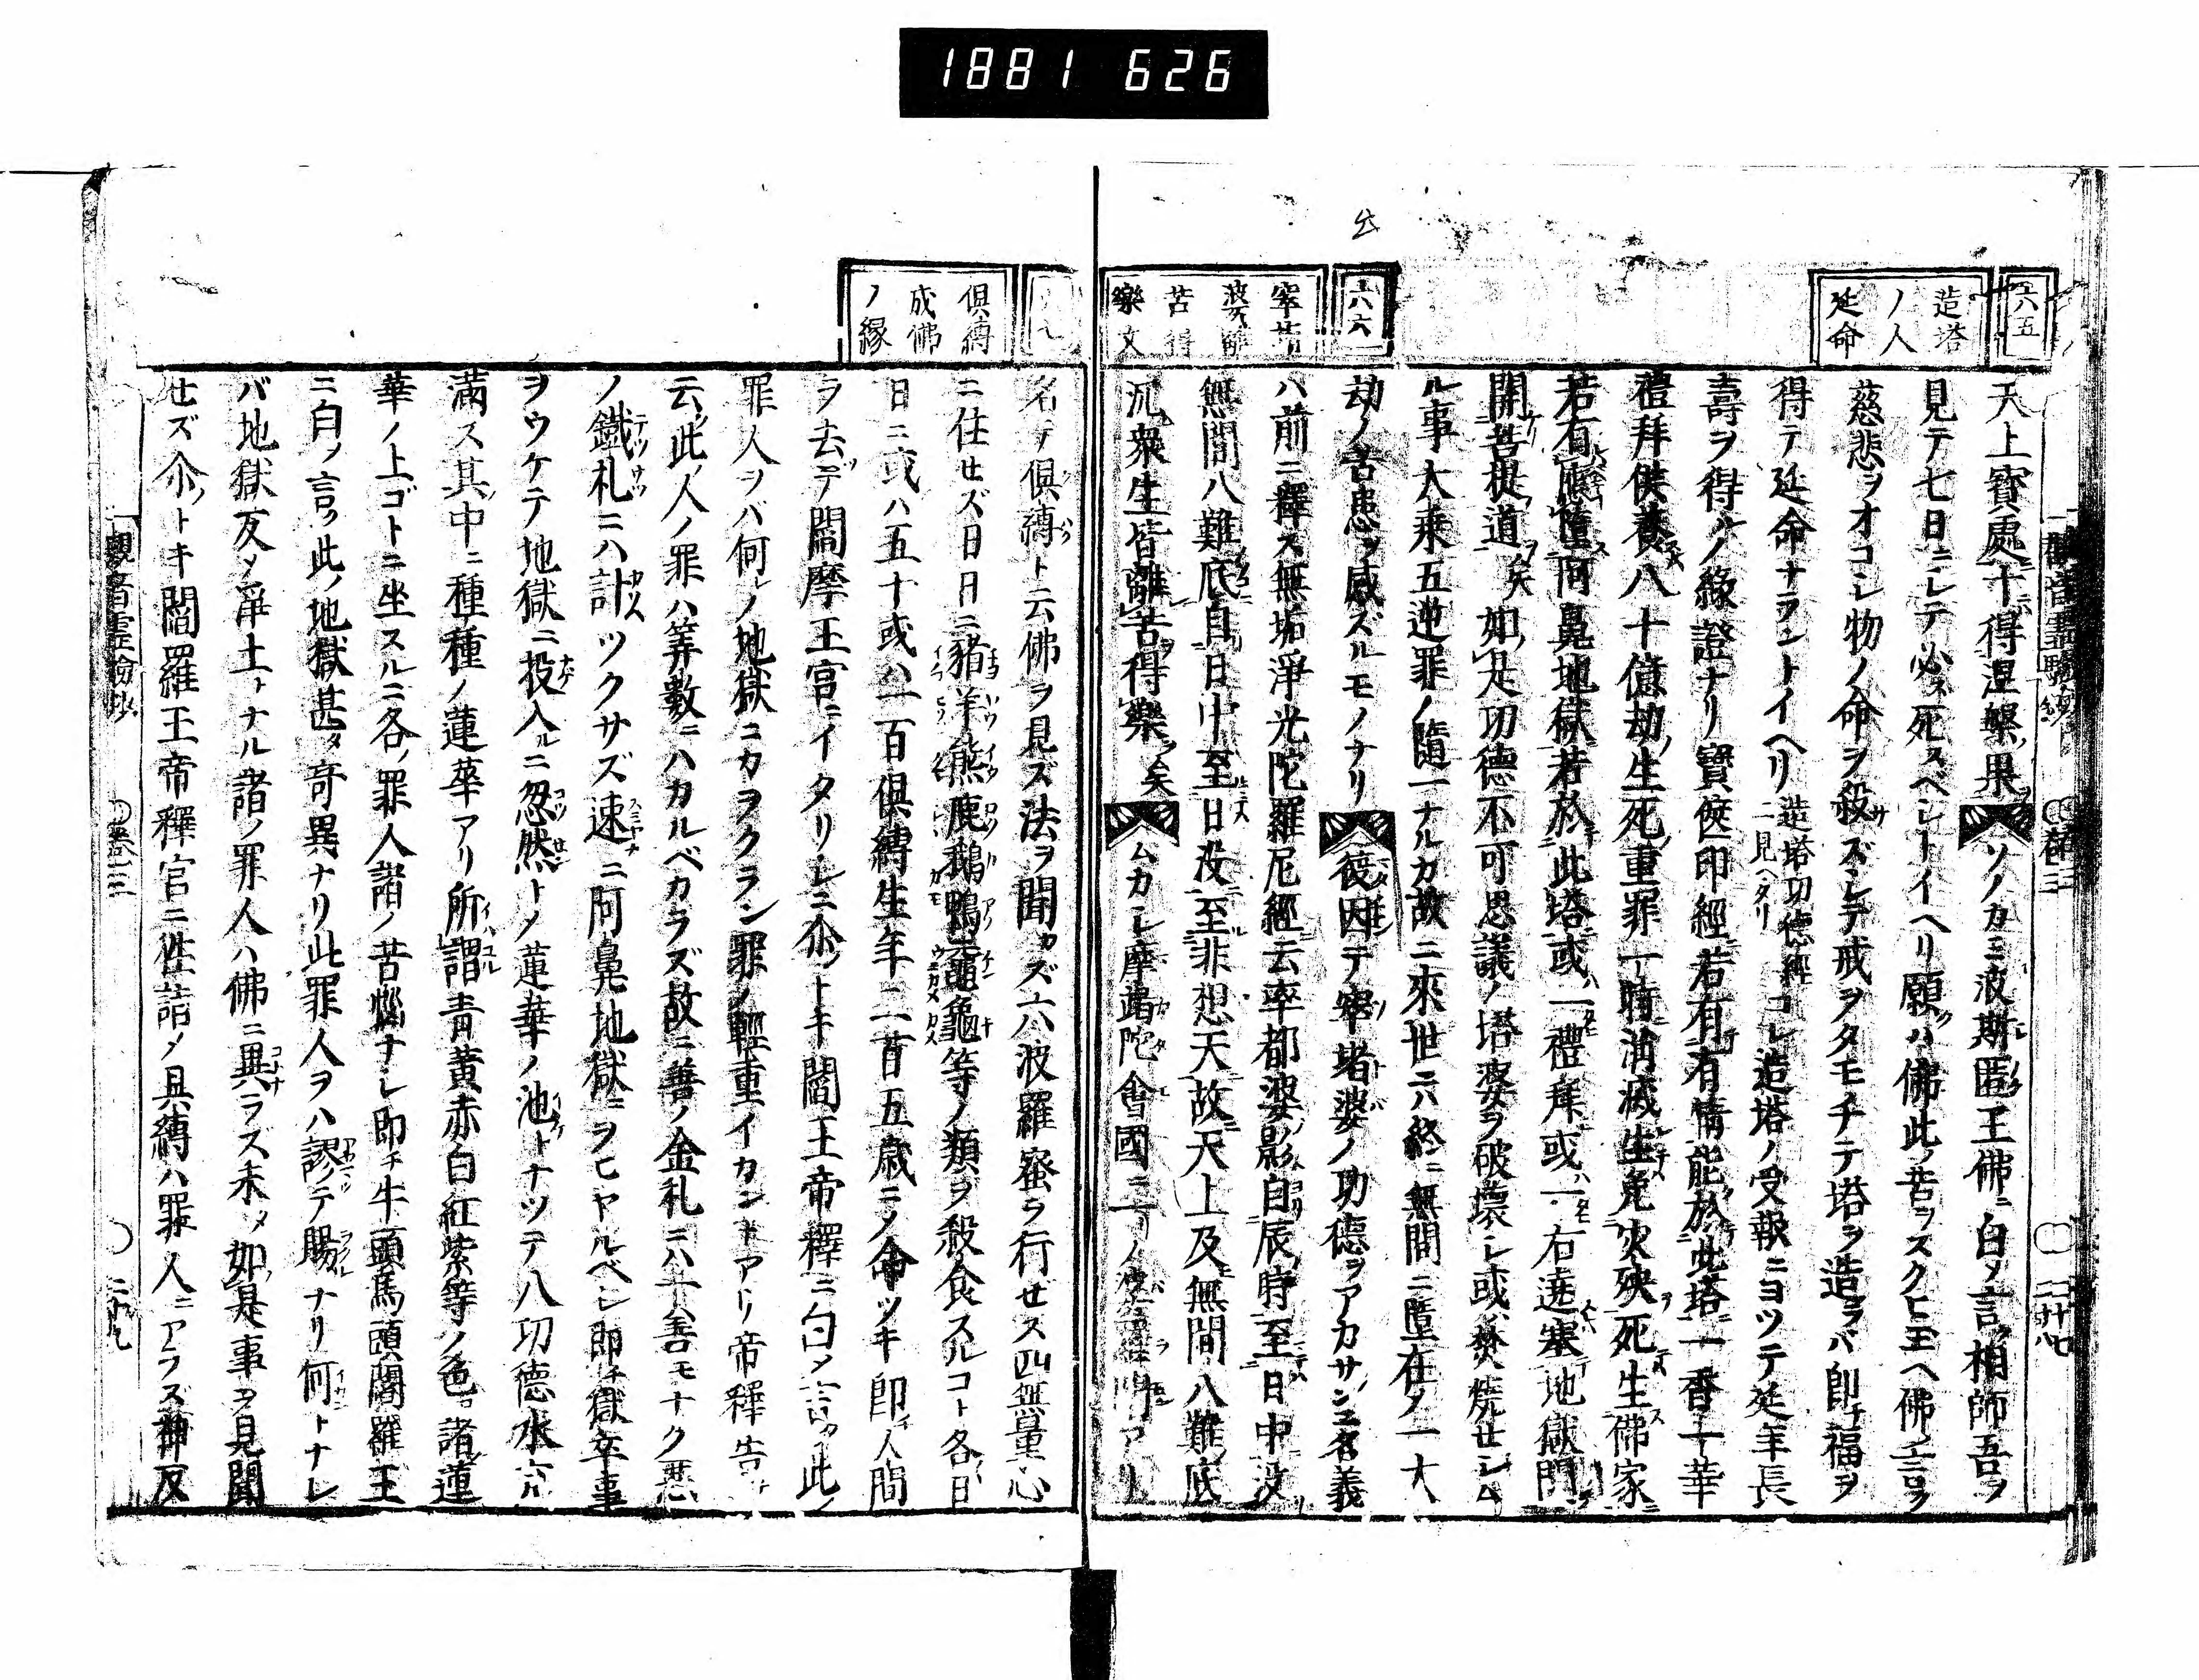 1881 626
六五
造塔
ノ人
延命
天上寶處十得涅槃果ソノカミ波斯匿王佛ニ白メ言相師吾ヲ
見テ七日ニシテ必ス死スベシトイヘリ願ハ佛此苦ヲスクヒ玉ヘ佛ノ玉ロク
慈悲ヲオコシ物ノ命ヲ殺ズシテ戒ヲタモチテ塔ヲ造ラバ即チ福ヲ
得テ延命ナラントイヘリ造塔功德經ニ見ヘタリコレ造塔ノ受報ニヨツテ延年長
壽ヲ得ルノ緣證ナリ寶篋印經若有有情能於此塔一香一華
禮拜供養八十億劫生死重罪一時消滅生免災殃死生佛家
若有應墮阿鼻地獄若於此塔或一禮拜或一右遶塞地獄門
開菩提道矣如是功德不可思議ノ塔婆ヲ破壞シ或焚燒セシム
ル事大乘五逆罪ノ隨一ナルカ故ニ來世ニハ終ニ無間ニ墮在メ一大
劫ノ苦患ヲ感ズルモノナリ
六六
窣堵
婆離
苦得
樂文
後因テ窣堵婆ノ功德ヲアカサン名義
ハ前ニ釋ス無垢淨光陀羅尼經云率都婆影自辰時至日中汲
無間八難底自日中至日沒至非想天故天上及無間八難底
沉衆生皆離苦得樂矣ムカシ摩羯陀會國ニ一リノ婆羅門アリ
俱縛
成佛
ノ緣
名テ俱縛ト云佛ヲ見ズ法ヲ聞カズ六波羅蜜ラ行セス四無量心
ニ住セズ日日ニ豬羊熊鹿鵝鴨黿龜等ノ類ヲ殺食スルコト各日
日ニ或ハ五十或ハ一百俱縛生年二百五歲ニメ命ツキ即チ人間
ヲ去テ閻摩王宮ニイタリシニ尒ノトキ閻王帝釋ニ白メ言此ノ
罪人ヲバ何レノ地獄ニカヲクラン罪ノ輕重イカントアリ帝釋告
云此ノ人ノ罪ハ筭數ニハカルベカラズ故ニ善ノ金札ニハ一善モナク悪
ノ鐵札ニハ計ツクサズ速ニ阿鼻地獄ニヲヒヤルベシ即チ獄卒事
ヲウケテ地獄ニ投入ルニ忽然トメ蓮華ノ池トナツテ八功德水充
滿ス其中ニ種種ノ蓮華アリ所謂青黃赤白紅紫等ノ色諸蓮
華ノ上ゴトニ坐スルニ各罪人諸ノ苦惱ナシ即チ牛頭馬頭閻羅王
ニ白ノ言ク此ノ地獄甚タ奇異ナリ此罪人ヲハ謬テ賜ナリ何トナレ
バ地獄反メ淨土トナル諸ノ罪人ハ佛ニ異ラズ未タ如是事ヲ見聞
セズ尒ノトキ閻羅王帝釋官ニ往詣メ具縛ハ罪人ニアラス神反
觀音靈驗抄
卷三
二十九